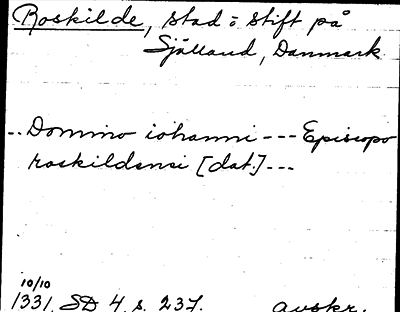 Roskilde, stad o stift på
Själland, Danmark
.. Domino iohanni --- Episcopo
roskildensi [dat.] ---
10/10
1331. SD 4, s. 237. avskr.